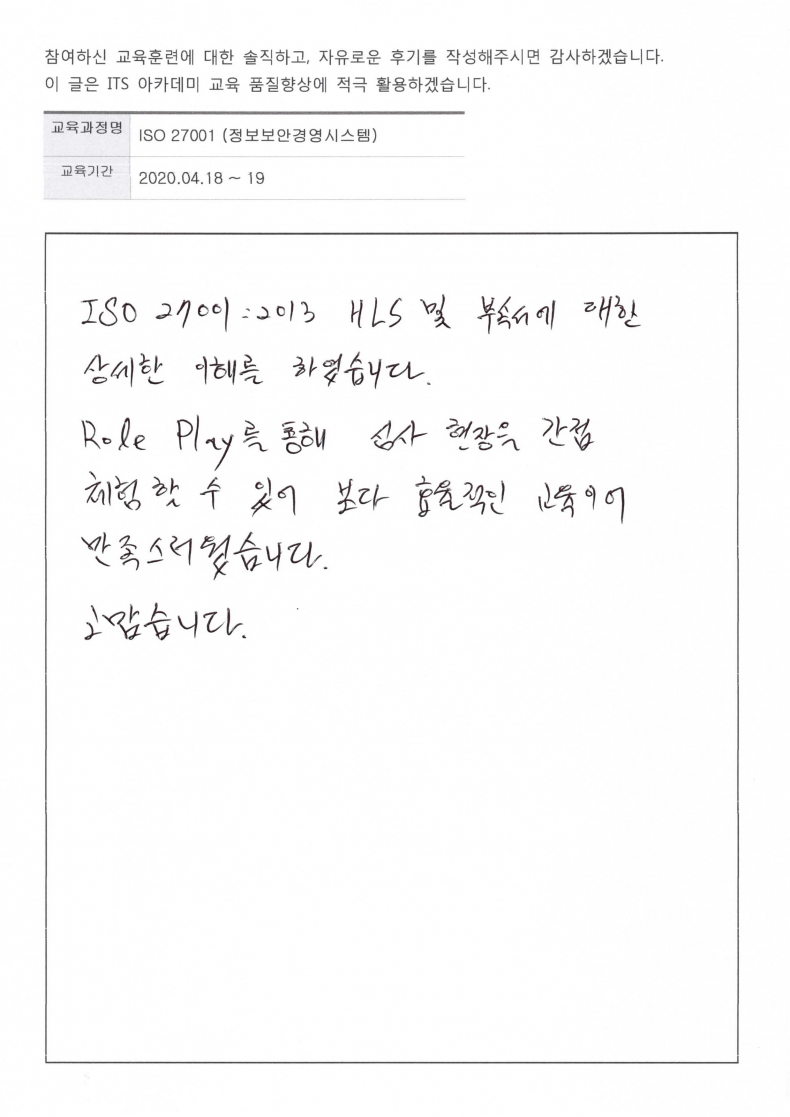 참여하신 교육훈련에 대한 솔직하고, 자유로운 후기를 작성해주시면 감사하겠습니다.
이 글은 ITS 아카데미 교육 품질향상에 적극 활용하겠습니다.
교육과정명 ISO 27001 (정보보안경영시스템)
교육기간 2020.04.18 ~ 19
ISO 27001:2013 HLS 및 부속서에 대한
상세한 이해를 하였습니다.
Role Play를 통해 심사 현장을 간접
체험할 수 있어 보다 효율적인 교육이어
만족스러웠습니다.
고맙습니다.